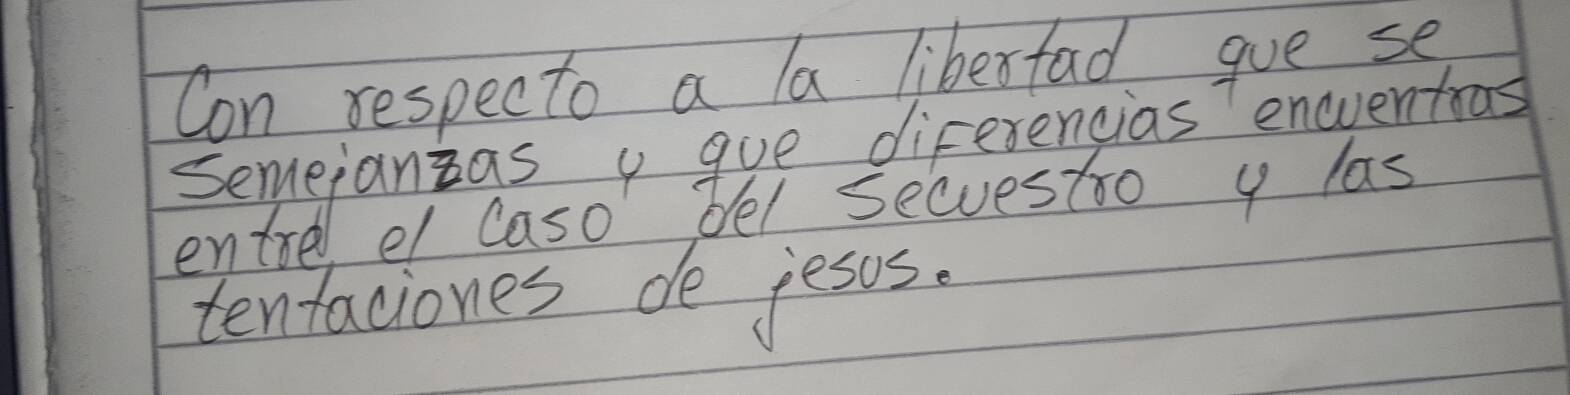 Con respecto a la libertad que se
semejanzas y que diferencias encuentras
entre el caso del secuestro y las
tentaciones de jesus.